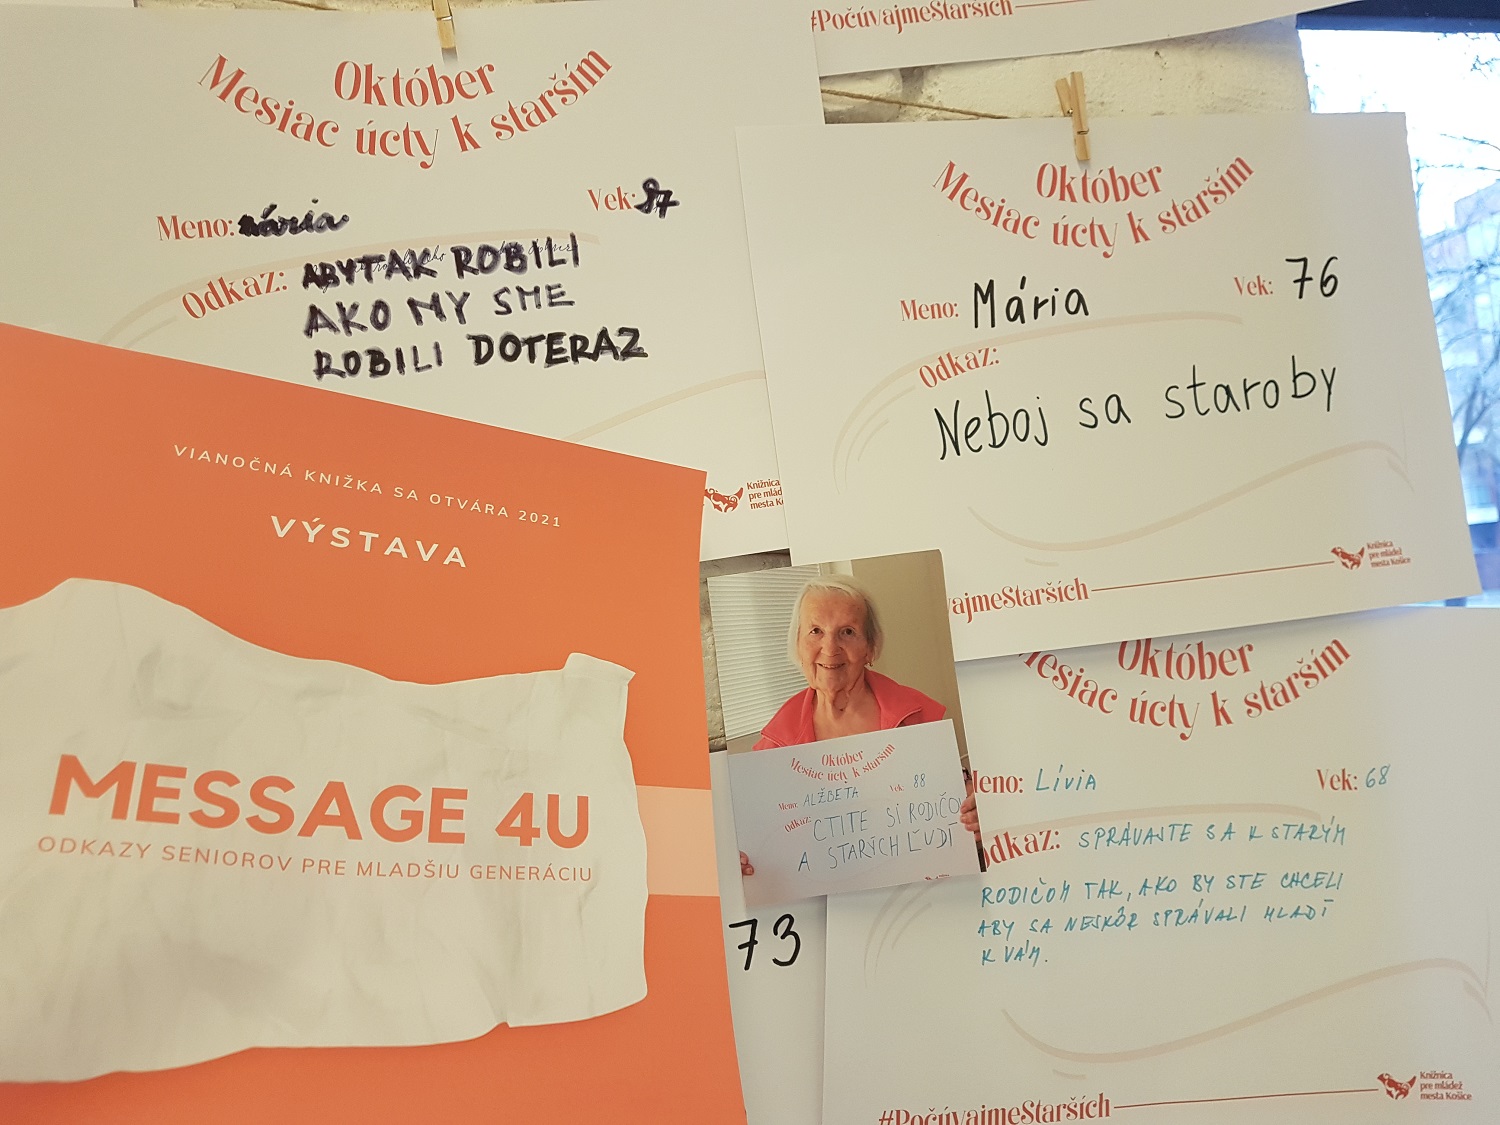 #PočúvajmeStarších
Október
Mesiac úcty k starším
Meno: Mária
Vek: 87
Odkaz: ABY TAK ROBILI
AKO MY SME
ROBILI DOTERAZ
Knižnica
pre mládež
mesta Ko
Október
Mesiac úcty k starším
Meno: Mária
Vek: 76
Odkaz:
Neboj sa staroby
Knižnica
pre mládež
mesta Košice
vajmeStarších
VIANOČNÁ KNIŽKA SA OTVÁRA 2021
VÝSTAVA
MESSAGE 4U
ODKAZY SENIOROV PRE MLADŠIU GENERÁCIU
Október
Mesiac úcty k starším
Meno: ALŽBETA
Vek: 88
Odkaz: CTITE SI RODIČO
A STARÝCH ĽUDÍ
73
Október
Mesiac úcty k starším
Meno: Lívia
Vek: 68
Odkaz: SPRÁVAJTE SA K STARÝM
RODIČOM TAK, AKO BY STE CHCELI
ABY SA NESKÔR SPRÁVALI MLADÍ
K VÁM.
Knižnica
pre mládež
mesta Košice
#PočúvajmeStarších